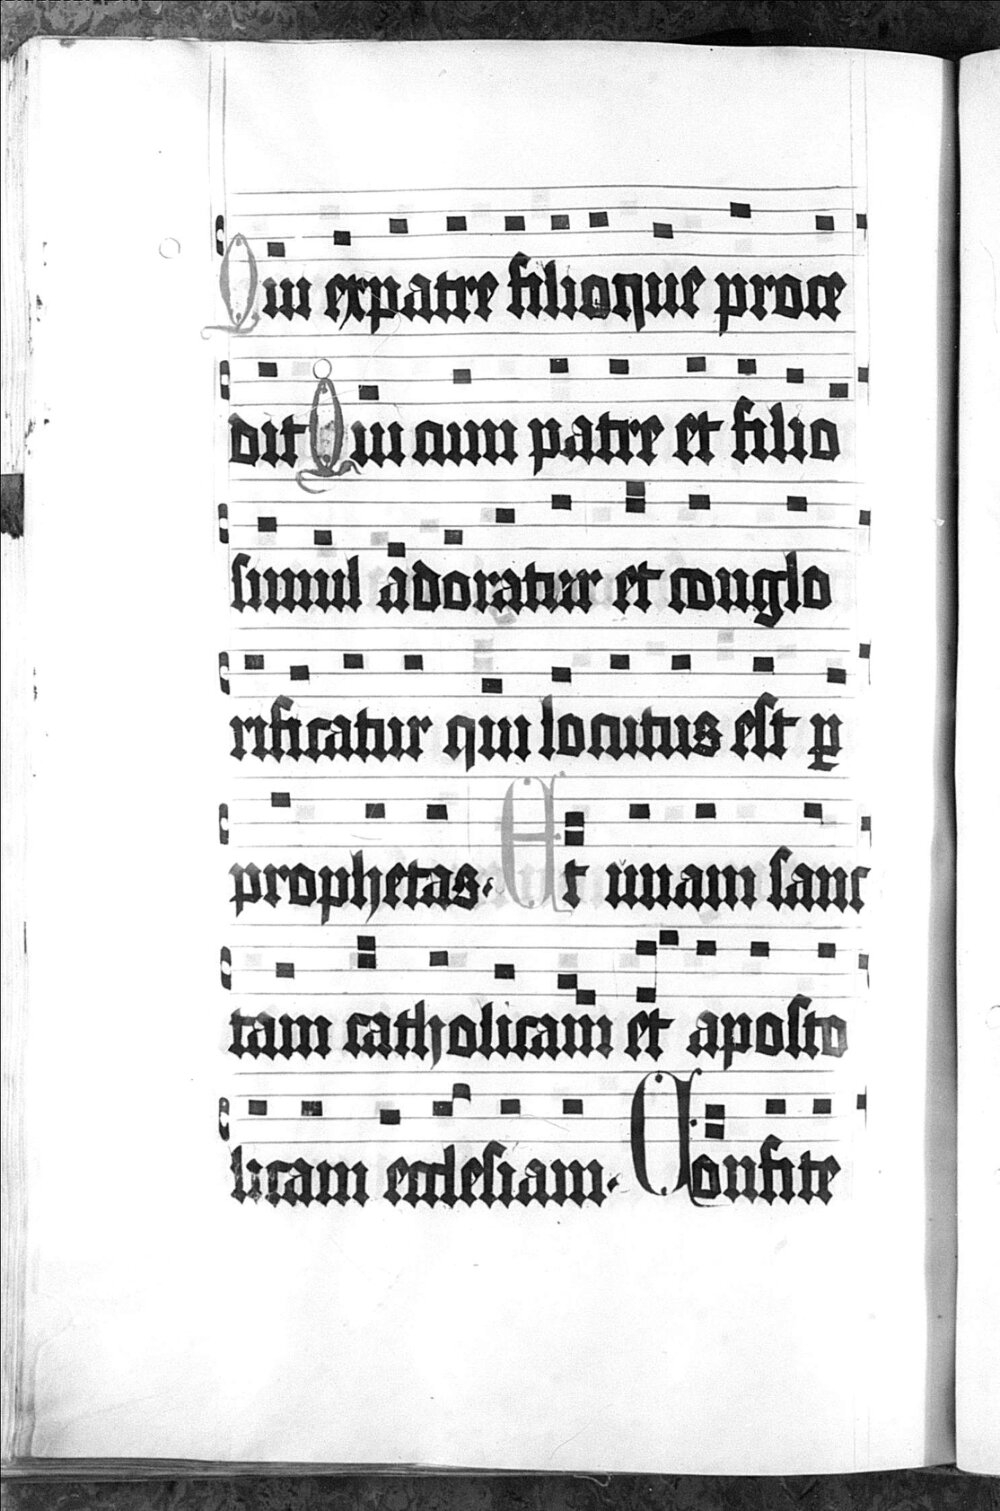 Qui expatre filioque proce
dit Qui cum patre et filio
simul adoratur et conglo
rificatur qui locutus est ꝑ
prophetas. Et unam sanc
tam catholicam et aposto
licam ecclesiam. Confite